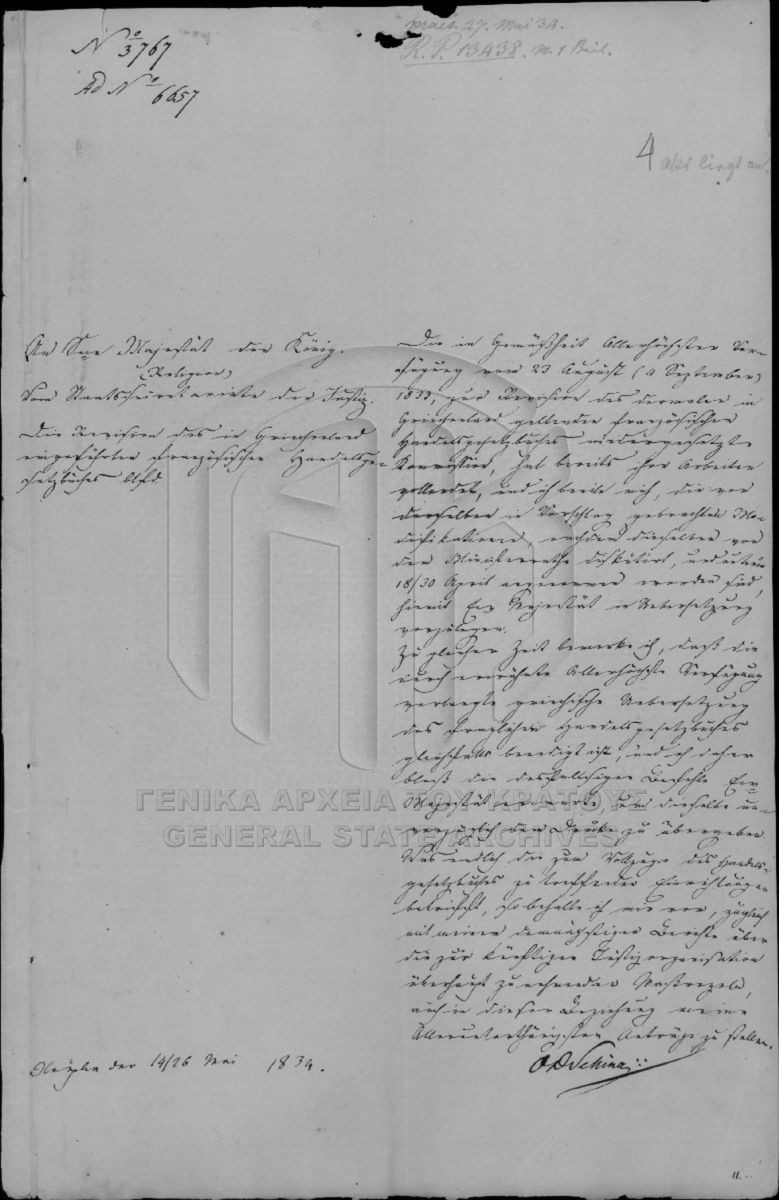 praes. 27. Mai 34.
R. P. 13438. m. 1 Beil.
No 3767
Ad No 6657
4 Akt liegt an.
An Sne Majestät den König.
Vom Staatssecretariate der Justiz.
Die Revision des in Griechenland
eingeführten französischen Handelsge-
setzbuches btfd.
Die in Gemäßheit Allerhöchster Ver-
fügung vom 23 August (4 September)
1833, zur Revision des dermalen in
Griechenland geltenden französischen
Handelsgesetzbuches niedergesetzte
Kommission, hat bereits ihre Arbeiten
vollendet, und ich beeile mich, die von
derselben in Vorschlag gebrachten Mo-
difikationen, nachdem dieselben von
dem Ministerrathe diskutirt, und unterm
18/30 April angenommen worden sind,
hiemit Eur Majestät in Uebersetzung
vorzulegen.
Zu gleicher Zeit bemerke ich, daß die
durch erwähnte Allerhöchste Verfügung
verlangte griechische Uebersetzung
des fraglichen Handelsgesetzbuches
gleichfalls beendigt ist, und ich daher
bloß die desfallsigen Befehle Eur
Majestät erwarte, um dieselbe un-
verzüglich dem Drucke zu übergeben.
Was endlich die zum Vollzuge des Handels-
gesetzbuches zu treffenden Einrichtungen
betrifft, so behalte ich mir vor, zugleich
mit meinem demnächstigen Berichte über
die zur künftigen Justizorganisation
überhaupt zu nehmenden Maßregeln,
auch in dieser Beziehung meine
Allerunterthänigsten Anträge zu stellen.
Nauplia den 14/26 Mai 1834.
C. D. Schina
ΓΕΝΙΚΑ ΑΡΧΕΙΑ ΤΟΥ ΚΡΑΤΟΥΣ
GENERAL STATE ARCHIVES
11.